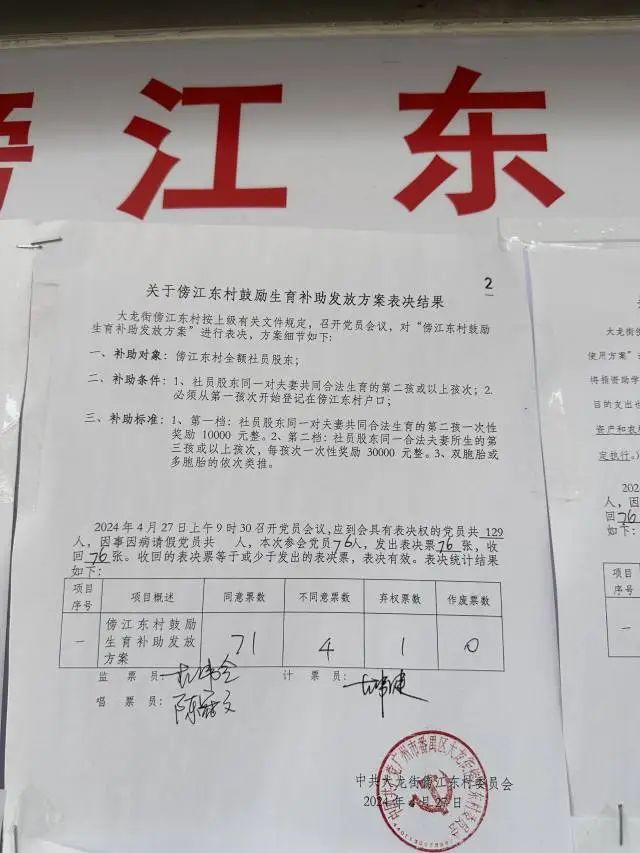 傍江东
2
关于傍江东村鼓励生育补助发放方案表决结果
大龙街傍江东村按上级有关文件规定，召开党员会议，对“傍江东村鼓励
生育补助发放方案”进行表决，方案细节如下：
一、补助对象：傍江东村全额社员股东；
二、补助条件：1、社员股东同一对夫妻共同合法生育的第二孩或以上孩次；2.
必须从第一孩次开始登记在傍江东村户口；
三、补助标准：1、第一档：社员股东同一对夫妻共同合法生育的第二孩一次性
奖励 10000 元整。2、第二档：社员股东同一合法夫妻所生的第
三孩或以上孩次，每孩次一次性奖励 30000 元整。3、双胞胎或
多胞胎的依次类推。
2024年4月27日上午9时30召开党员会议，应到会具有表决权的党员共 129
人，因事因病请假党员共 人，本次参会党员76人，发出表决票76张，收
回76张。收回的表决票等于或少于发出的表决票，表决有效。表决统计结果
如下：
项目序号 项目概述 同意票数 不同意票数 弃权票数 作废票数
一 傍江东村鼓励生育补助发放方案 71 4 1 0
监 票 员： 计 票 员：
唱 票 员：
中共大龙街傍江东村委员会
2024 年 4 月 27 日
大龙街
使用方案”
将指资助学
目的支出
资产和农
定执行。）
202
人，因
回76
如下：
项目
序号
一